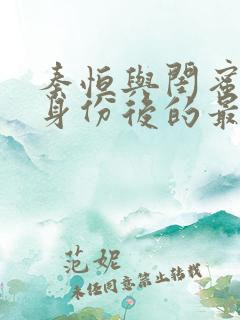 秦恒與閨蜜
身份後的最
范妮
未经同意禁止转载